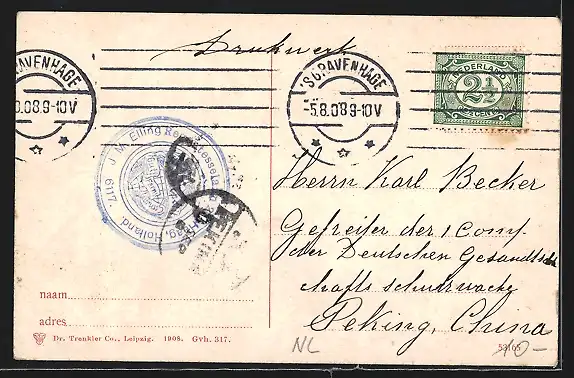 Drukwerk
'S GRAVENHAGE
0.08 9-10V
'S GRAVENHAGE
-5.8.08 9-10V
NEDERLAND
2½
CENT
6117 J. M. Elling
Holland.
PEKING
Herrn Karl Becker
Gefreiter der 1 Comp
der Deutschen Gesandtsch
hafts schutzwache
Peking, China
naam
adres
Dr. Trenkler Co., Leipzig. 1908. Gvh. 317.
NL
53165
10-